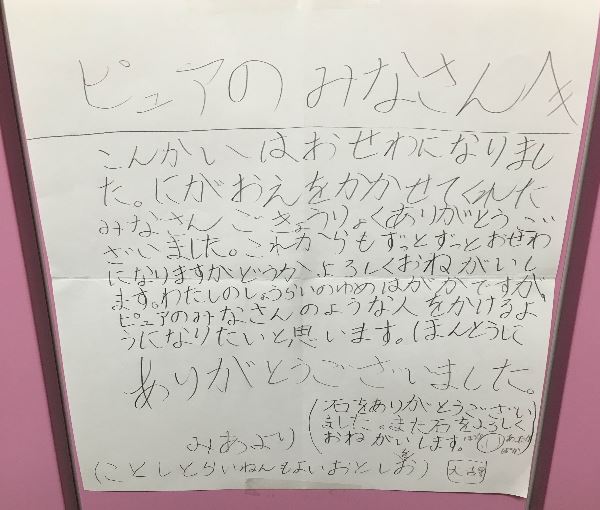 ピュアの みなさんへ
こんかいはおせわになりまし
た。にがおえをかかせてくれた
みなさん ごきょうりょくありがとうござ
ざいました。これからもずっとずっとおせわ
になりますがどうかよろしくおねがいし
ます。わたしのしょうらいのゆめはがかですが
ピュアのみなさんのような人をかけるよ
うになりたいと思います。ほんとうに
ありがとうございました。
(石をありがとうござい
ました。また石をよろしく
おねがいします。
みあより
(ことしとらいねんもよいおとしを)